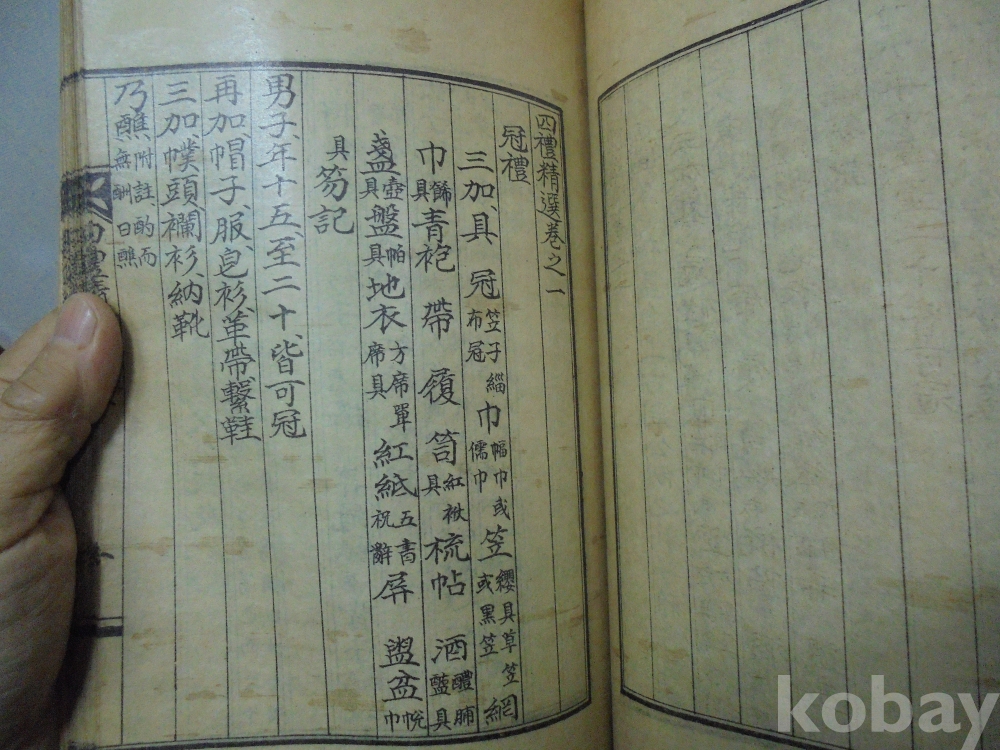 四禮精選卷之一
冠禮
三加具 冠 笠子緇布冠 巾 幅巾或儒巾 笠 纓具草笠或黑笠 網
巾 飾具 青袍 帶 履 笥 紅袱具 梳帖 酒 醴脯醢具
盞 壺具 盤 帕具 地衣 方席單席具 紅紙 五書祝辭 屏 盥盆 帨巾
具 笏記
男子、年十五、至二十、皆可冠
再加、帽子、服皂衫、革帶、繫鞋
三加、幞頭、襴衫、納靴
乃醮 附註酌而無酬曰醮
kobay